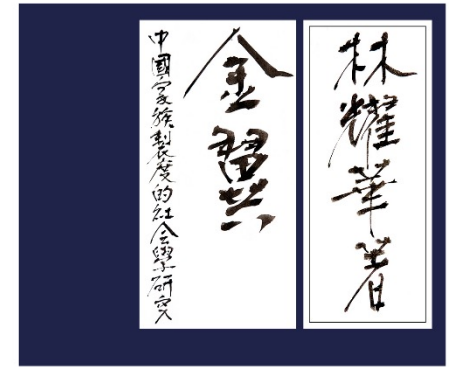 林耀華著
金翼
中國家族製度的社会學研究